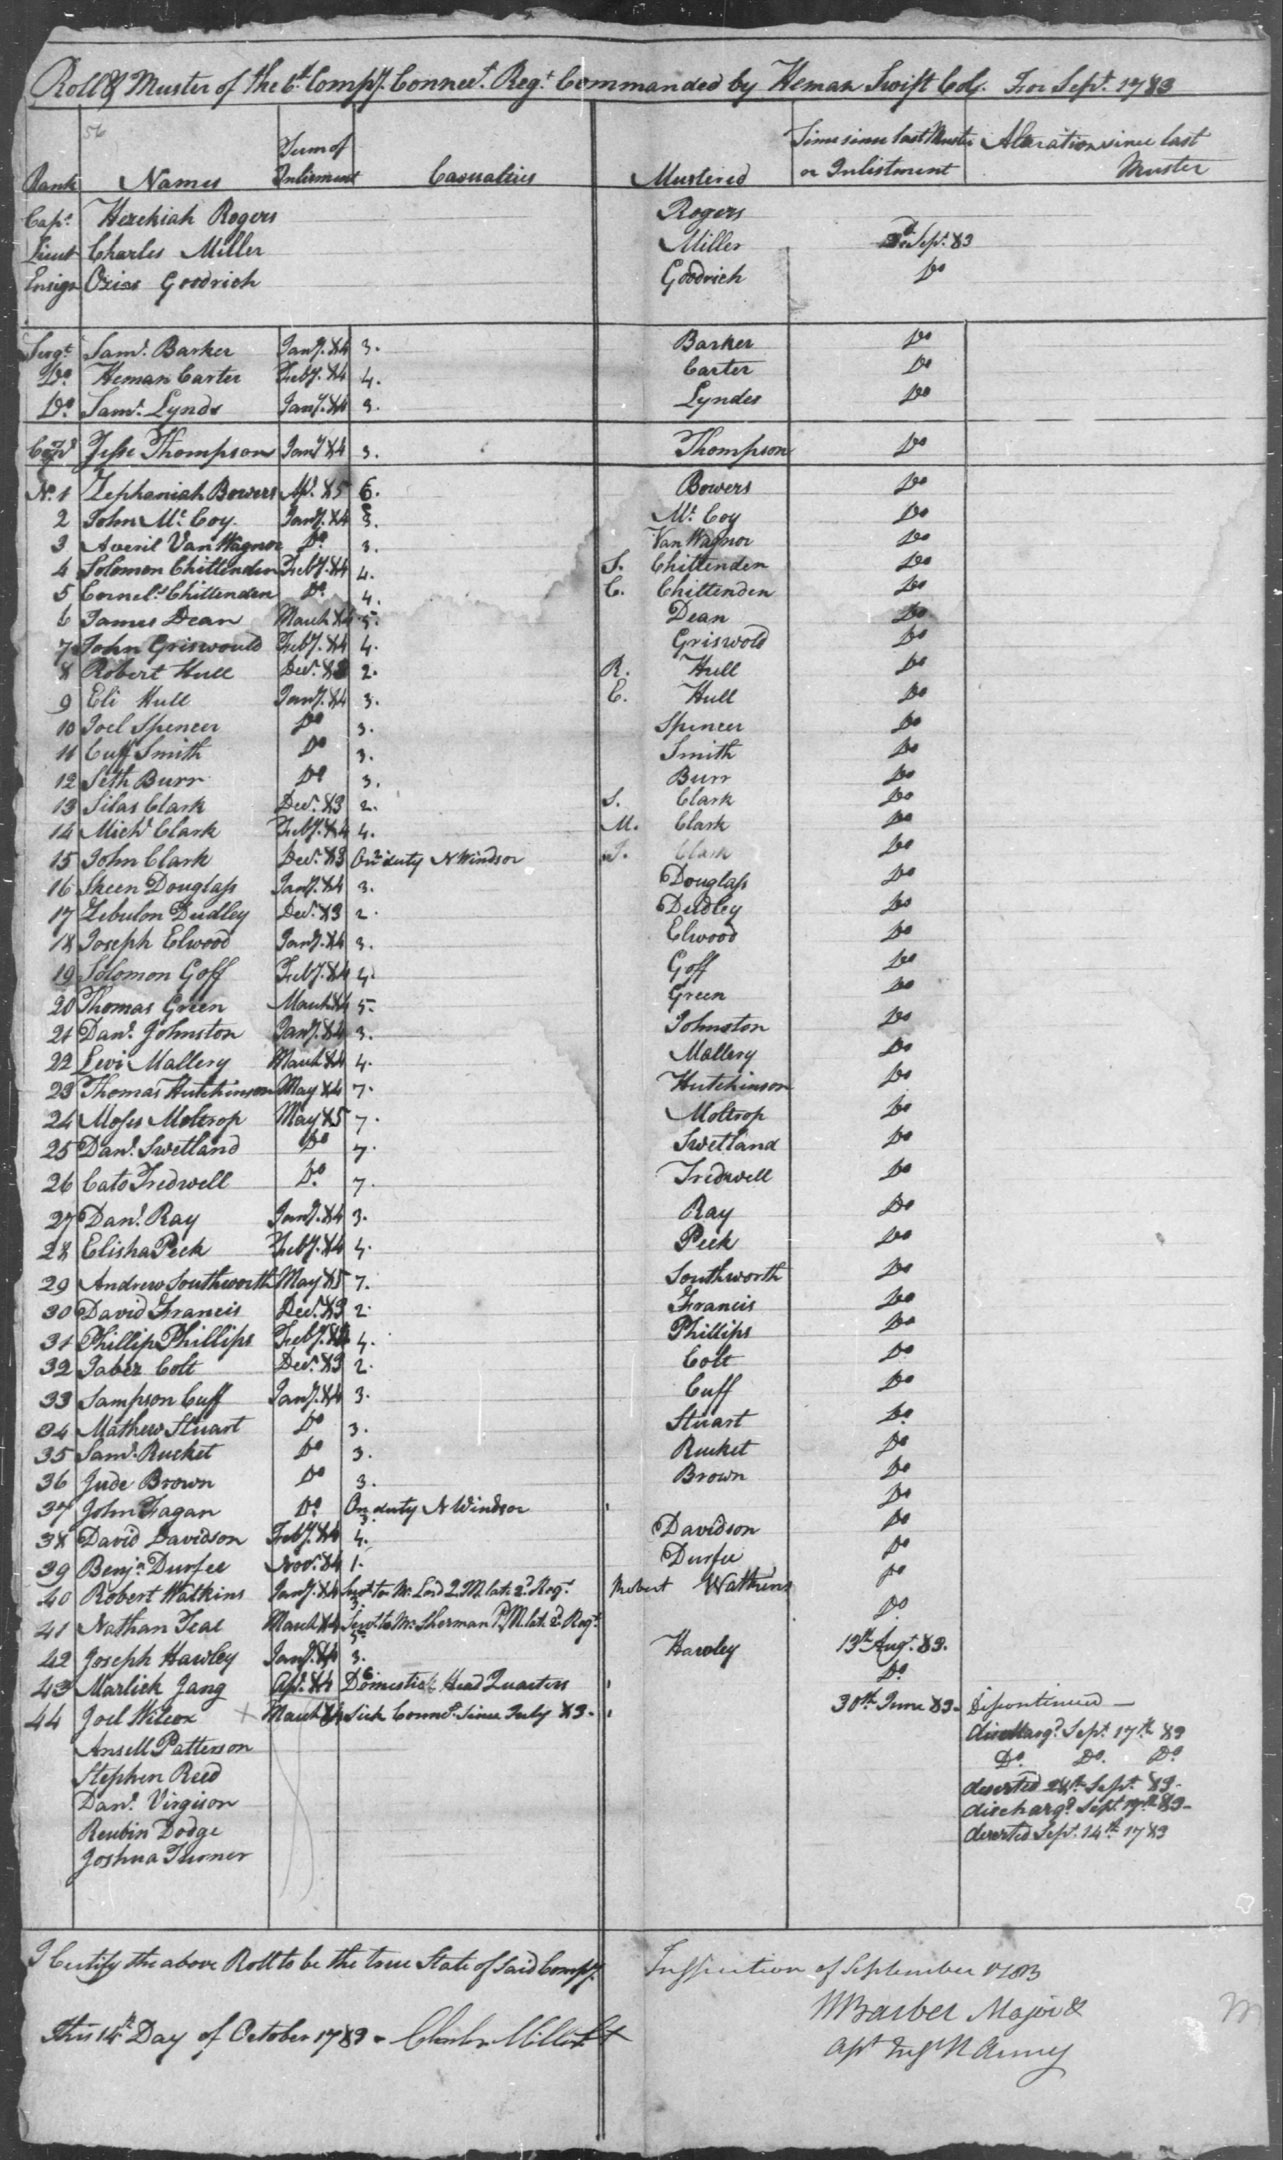 Roll & Muster of the 6t. Compy. Connect. Regt. Commanded by Heman Swift Col. For Sept. 1783
56
Rank Names Term of Inlisment Casualties Mustered Time since last Muster or Inlistment Alaration since last Muster
Capt. Hezekiah Rogers Rogers
Lieut Charles Miller Miller Sept. 83
Ensign Ozias Goodrich Goodrich Do
Sergt. Saml. Barker Jany. 84 3. Barker Do
Do. Heman Carter Feby. 84 4. Carter Do
Do. Saml. Lynds Jany. 84 3. Lyndes Do
Jesse Thompson Jany 84 3. Thompson Do
No. 1 Zephaniah Bowers Ap. 85 6. Bowers Do
2 John Mc. Coy. Jany. 84 3. Mc. Coy Do
3 Averil Van Wagnor Do 3. Van Wagnor Do
4 Solomon Chittenden Feby. 84 4. S. Chittenden Do
5 Cornels. Chittenden Do. 4. C. Chittenden Do
6 James Dean March 84 5. Dean Do
7 John Griswould Feby. 84 4. Griswold Do
8 Robert Hull Decr. 83 2. R. Hull Do
9 Eli Hull Jany. 84 3. E. Hull Do
10 Joel Spencer Do 3. Spencer Do
11 Cuff Smith Do 3. Smith Do
12 Seth Burr Do 3. Burr Do
13 Silas Clark Decr. 83 2. S. Clark Do
14 Michl Clark Feby. 84 4. M. Clark Do
15 John Clark Decr. 83 On duty N Windsor J. Clark Do
16 Skeen Douglass Jany. 84 3. Douglass Do
17 Zebulon Dudley Decr. 83 2. Dudley Do
18 Joseph Elwood Jany. 84 3. Elwood Do
19 Solomon Goff Feby. 84 4. Goff Do
20 Thomas Green March 84 5. Green Do
21 Danl. Johnston Jany. 84 3. Johnston Do
22 Levi Mallery March 84 4. Mallery Do
23 Thomas Hutchinson May 84 7. Hutchinson Do
24 Moses Moltrop May 85 7. Moltrop Do
25 Danl. Swetland Do 7. Swetland Do
26 Cato Tredwell Do. 7. Tredwell Do
27 Danl. Ray Jany. 84 3. Ray Do
28 Elisha Peck Feby. 84 4. Peck Do
29 Andrew Southworth May 85 7. Southworth Do
30 David Francis Decr. 83 2. Francis Do
31 Phillip Phillips Feby. 84 4. Phillips Do
32 Jaber Colt Decr. 83 2. Colt Do
33 Sampson Cuff Jany. 84 3. Cuff Do
34 Mathew Stuart Do 3. Stuart Do.
35 Saml. Rucket Do 3. Rucket Do
36 Jude Brown Do 3. Brown Do
37 John Fagan Do. On duty N Windsor 3. Do
38 David Davidson Feby. 84 4. Davidson Do
39 Benja. Durfee Novr. 84 1. Durfee Do
40 Robert Watkins Jany. 84 Servt. to Mr. Lord Q.M. late 2d. Regt. 3. Robert Watkins Do
41 Nathan Teal March 84 Servt. to Mr. Sherman P.M. late 2d. Regt. 5. Do.
42 Joseph Hawley Jany. 84 3. Hawley 13th Augt. 83.
43 Marlick Jang Apl. 84 6 Domestick Head Quarters Do.
44 Joel Wilcox March 84 Sick Connt. Since July 83. 30th June 83. Discontinued
Ansell Patterson dischargd. Sept. 17th 83
Stephen Reed Do. Do. Do
Danl. Virgison deserted 28th Sept. 83.
Reubin Dodge dischargd. Sept. 17th 83
Joshua Turner deserted Sept. 14th. 1783
I Certify the above Roll to be the true State of Said Compy.
This 14th Day of October 1783 Charles Miller Lt
Inspection of September 1783
W Barber Major &
asst Insp N Army